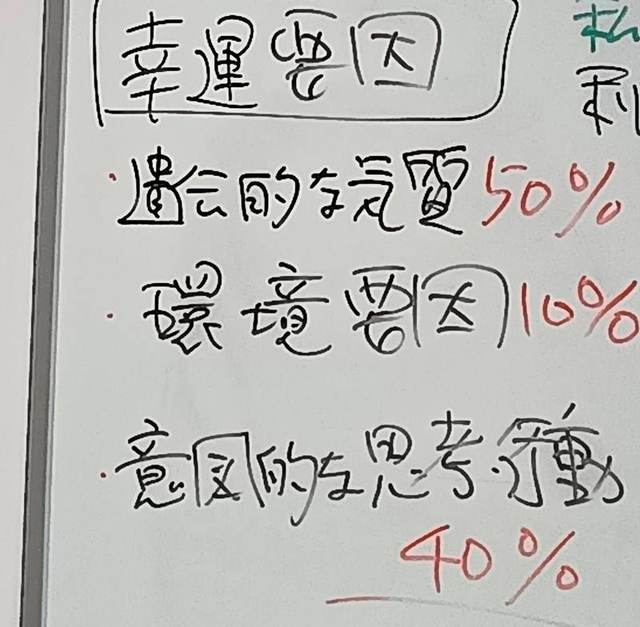 幸運要因
私
利
・遺伝的な気質 50%
・環境要因 10%
・意図的な思考・行動
40%